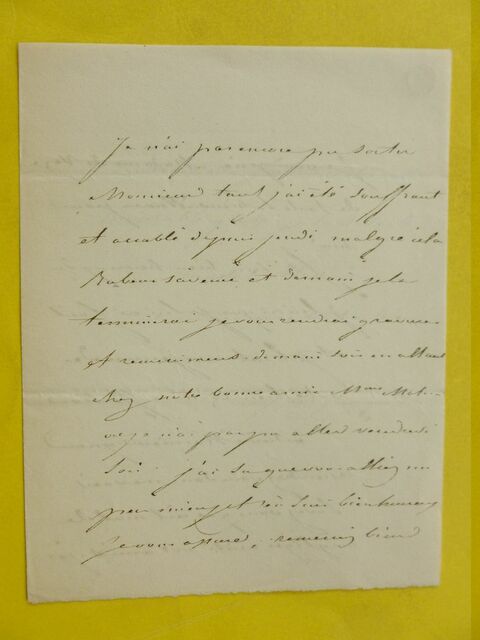 Je n'ai pas encore pu sortir
Monsieur tant j'ai été souffrant
et accablé depuis jeudi malgré cela
Rubens s'avance et demain je le
terminerai je vous rendrai gravures
et remerciments demain soir en allant
chez notre bonne amie Mme Mel-
je n'ai pas pu aller vendredi
soir. j'ai su que vous alliez un
peu mieux et j'en suis bien heureux
je vous assure,